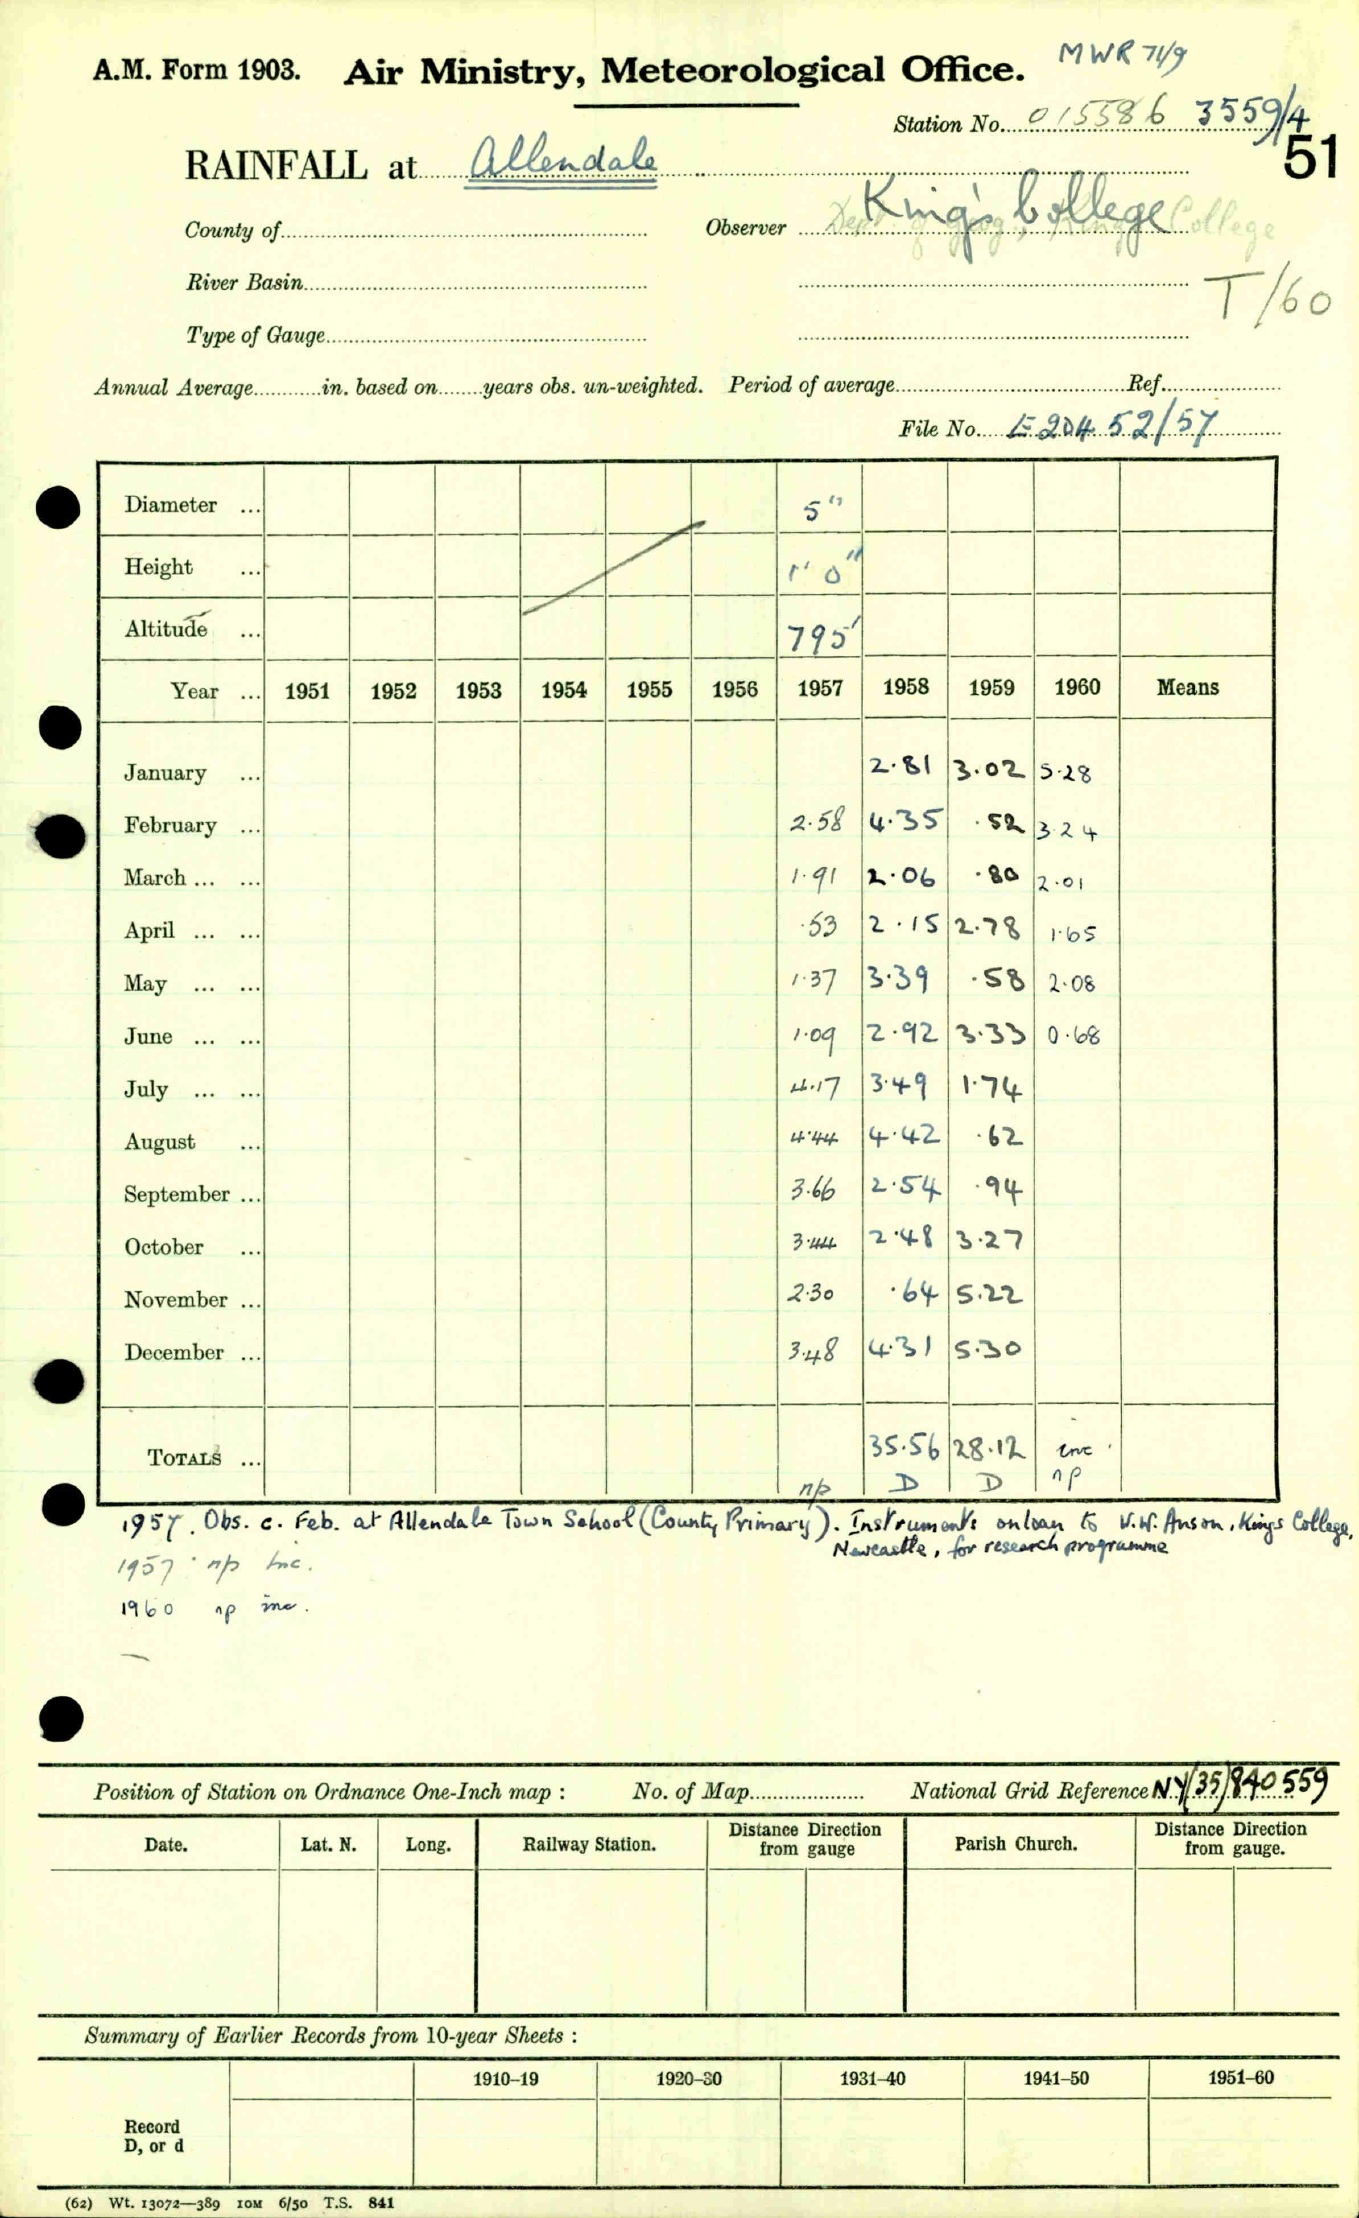 MWR 71/9
A.M. Form 1903. Air Ministry, Meteorological Office.
Station No. 015586 3559/4
51
RAINFALL at Allendale
County of Observer King's College
Dept. of Geog., King's College
River Basin
T/60
Type of Gauge
Annual Average in. based on years obs. un-weighted. Period of average Ref.
File No. E204 52/57
Diameter ... 5"
Height ... 1' 0"
Altitude ... 795'
Year ... 1951 1952 1953 1954 1955 1956 1957 1958 1959 1960 Means
January ... 2.81 3.02 5.28
February ... 2.58 4.35 .52 3.24
March ... ... 1.91 2.06 .80 2.01
April ... ... .53 2.15 2.78 1.65
May ... ... 1.37 3.39 .58 2.08
June ... ... 1.09 2.92 3.33 0.68
July ... ... 4.17 3.49 1.74
August ... 4.44 4.42 .62
September ... 3.66 2.54 .94
October ... 3.44 2.48 3.27
November ... 2.30 .64 5.22
December ... 3.48 4.31 5.30
TOTALS ... 35.56 28.12 inc.
np D D np
1957. Obs. c. Feb. at Allendale Town School (County Primary). Instruments on loan to W.W. Anson, Kings College,
Newcastle, for research programme
1957 np Inc.
1960 np inc.
Position of Station on Ordnance One-Inch map : No. of Map National Grid Reference NY(35)840559
Date. Lat. N. Long. Railway Station. Distance from Direction gauge Parish Church. Distance from Direction gauge.
Summary of Earlier Records from 10-year Sheets :
1910–19 1920–30 1931–40 1941–50 1951–60
Record
D, or d
(62) Wt. 13072—389 10M 6/50 T.S. 841